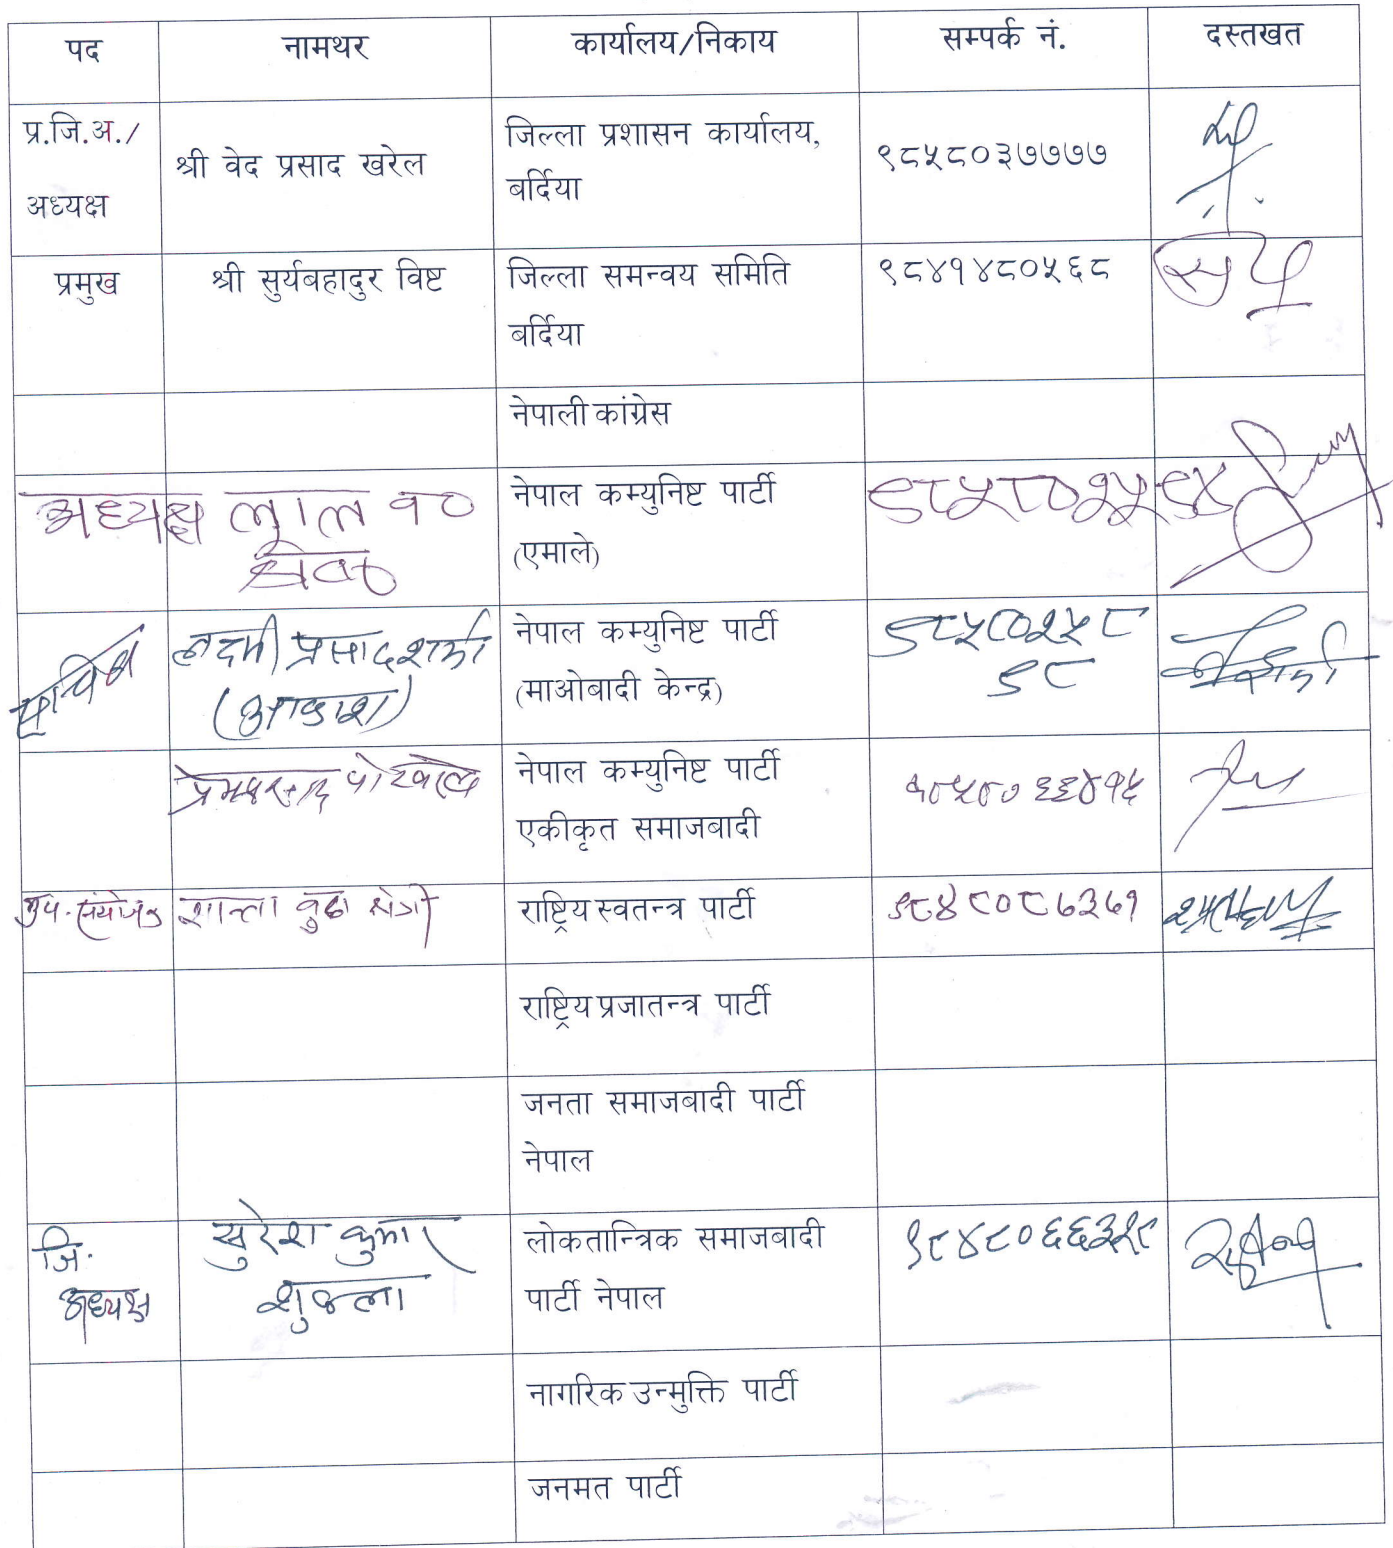 पद नामथर कार्यालय/निकाय सम्पर्क नं. दस्तखत
प्र.जि.अ./
अध्यक्ष
श्री वेद प्रसाद खरेल
जिल्ला प्रशासन कार्यालय,
बर्दिया
९८५८०३७७७७
प्रमुख
श्री सुर्यबहादुर विष्ट
जिल्ला समन्वय समिति
बर्दिया
९८४१४८०५६८
नेपाली कांग्रेस
अध्यक्ष
लाल व०
नेपाल कम्युनिष्ट पार्टी
(एमाले)
९८५८०२५९४
सचिव
लक्ष्मी प्रसाद शर्मा
(आकाश)
नेपाल कम्युनिष्ट पार्टी
(माओबादी केन्द्र)
९८५८०२५८
९८
प्रेमप्रसाद पोखरेल
नेपाल कम्युनिष्ट पार्टी
एकीकृत समाजबादी
उप-संयोजक
शान्ता बुढा क्षेत्री
राष्ट्रिय स्वतन्त्र पार्टी
९८४८०८७३७१
राष्ट्रिय प्रजातन्त्र पार्टी
जनता समाजबादी पार्टी
नेपाल
जि.
अध्यक्ष
सुरेश कुमार
शुक्ला
लोकतान्त्रिक समाजबादी
पार्टी नेपाल
९८४८०६६३२८
नागरिक उन्मुक्ति पार्टी
जनमत पार्टी